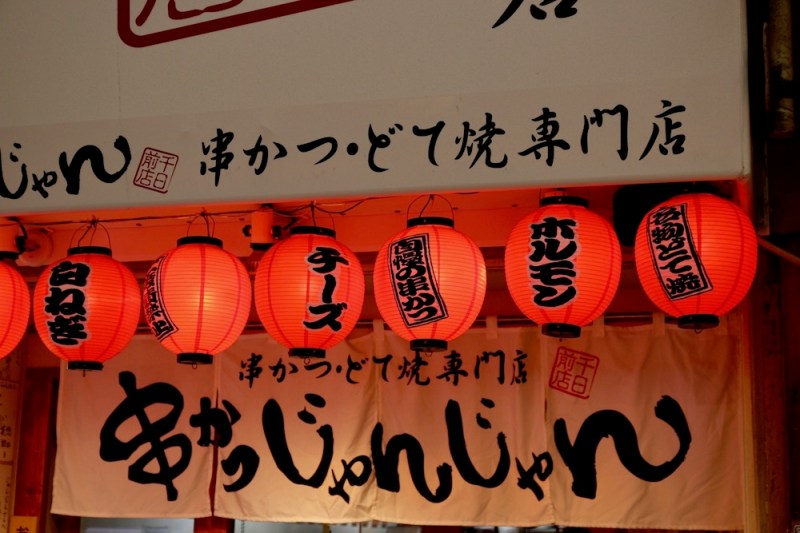 店
じゃん
千日前店
串かつ・どて焼専門店
白ねぎ
チーズ
自慢の串かつ
ホルモン
名物どて焼
串かつ・どて焼専門店
千日前店
串かつじゃんじゃん